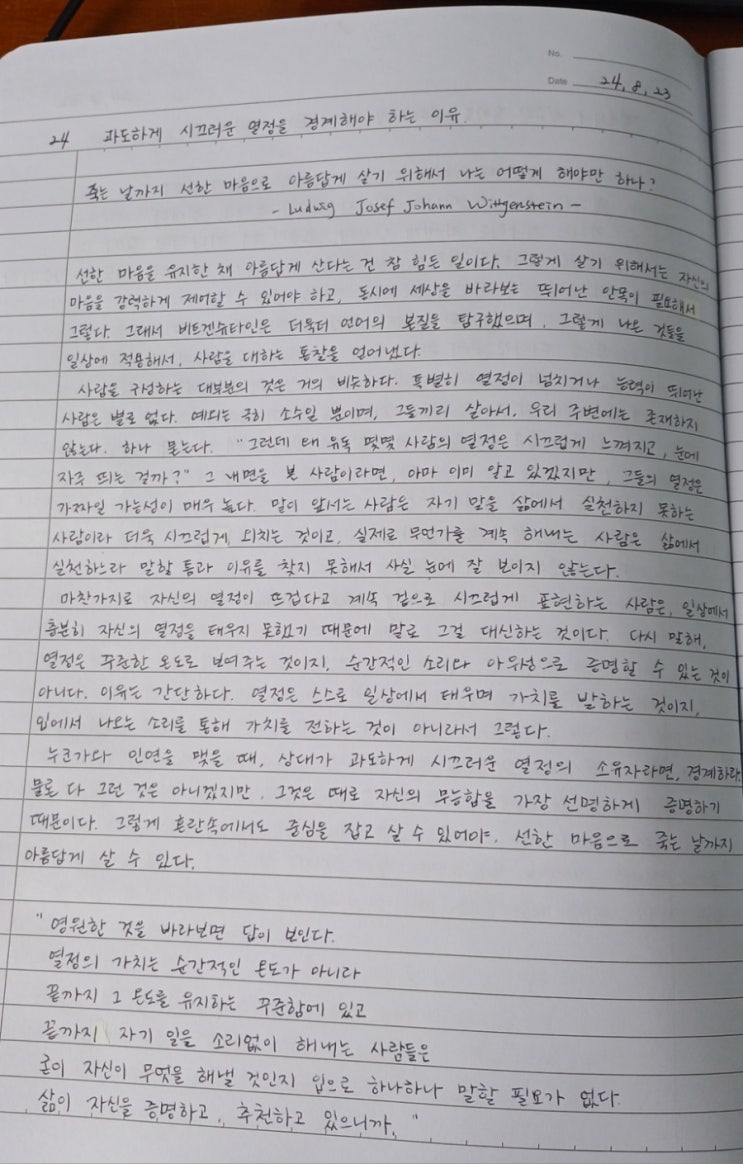 No.
Date 24. 8. 23
24 과도하게 시끄러운 열정을 경계해야 하는 이유.
죽는 날까지 선한 마음으로 아름답게 살기 위해서 나는 어떻게 해야만 하나?
- Ludwig Josef Johann Wittgenstein -
선한 마음을 유지한 채 아름답게 산다는 건 참 힘든 일이다. 그렇게 살기 위해서는 자신의
마음을 강력하게 제어할 수 있어야 하고, 동시에 세상을 바라보는 뛰어난 안목이 필요해서
그렇다. 그래서 비트겐슈타인은 더욱더 언어의 본질을 탐구했으며, 그렇게 나온 것들을
일상에 적용해서, 사람을 대하는 통찰을 얻어냈다.
사람을 구성하는 대부분의 것은 거의 비슷하다. 특별히 열정이 넘치거나 능력이 뛰어난
사람은 별로 없다. 예외는 극히 소수일 뿐이며, 그들끼리 살아서, 우리 주변에는 존재하지
않는다. 하나 묻는다. "그런데 왜 유독 몇몇 사람의 열정은 시끄럽게 느껴지고, 눈에
자주 띄는 걸까?" 그 내면을 본 사람이라면, 아마 이미 알고 있겠지만, 그들의 열정은
가짜일 가능성이 매우 높다. 말이 앞서는 사람은 자기 말을 삶에서 실천하지 못하는
사람이라 더욱 시끄럽게 외치는 것이고, 실제로 무언가를 계속 해내는 사람은 삶에서
실천하느라 말할 틈과 이유를 찾지 못해서 사실 눈에 잘 보이지 않는다.
마찬가지로 자신의 열정이 뜨겁다고 계속 겉으로 시끄럽게 표현하는 사람은, 일상에서
충분히 자신의 열정을 태우지 못했기 때문에 말로 그걸 대신하는 것이다. 다시 말해,
열정은 꾸준한 온도로 보여주는 것이지, 순간적인 소리와 아우성으로 증명할 수 있는 것이
아니다. 이유는 간단하다. 열정은 스스로 일상에서 태우며 가치를 발하는 것이지,
입에서 나오는 소리를 통해 가치를 전하는 것이 아니라서 그렇다.
누군가와 인연을 맺을 때, 상대가 과도하게 시끄러운 열정의 소유자라면, 경계하라.
물론 다 그런 것은 아니겠지만, 그것은 때로 자신의 무능함을 가장 선명하게 증명하기
때문이다. 그렇게 혼란속에서도 중심을 잡고 살 수 있어야, 선한 마음으로 죽는 날까지
아름답게 살 수 있다.
"영원한 것을 바라보면 답이 보인다.
열정의 가치는 순간적인 온도가 아니라
끝까지 그 온도를 유지하는 꾸준함에 있고
끝까지 자기 일을 소리없이 해내는 사람들은
굳이 자신이 무엇을 해낼 것인지 입으로 하나하나 말할 필요가 없다.
삶이 자신을 증명하고, 추천하고 있으니까."